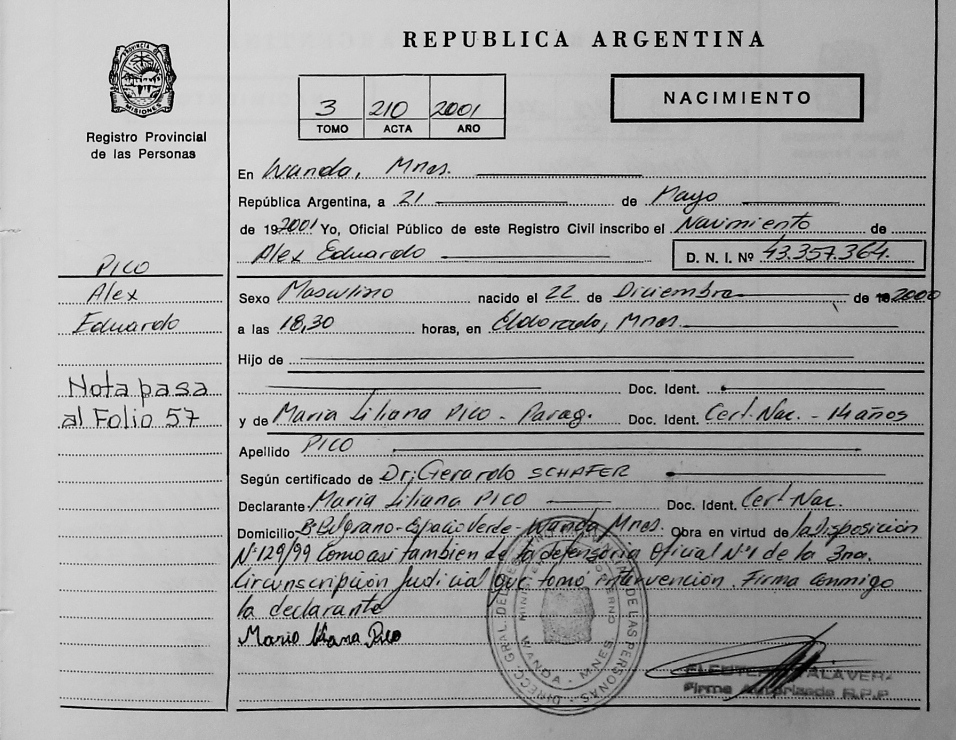 REPUBLICA ARGENTINA
PROVINCIA DE MISIONES
Registro Provincial
de las Personas
3 210 2001
TOMO ACTA AÑO
NACIMIENTO
En Wanda, Mnes.
República Argentina, a 21 de Mayo
de 192001 Yo, Oficial Público de este Registro Civil inscribo el Nacimiento de
Alex Eduardo D. N. I. Nº 43.357.364.
PICO
Alex
Eduardo
Nota pasa
al Folio 57
Sexo Masculino nacido el 22 de Diciembre de 2000
a las 18,30 horas, en Eldorado, Mnes.
Hijo de
Doc. Ident.
y de Maria Liliana PICO - Parag. Doc. Ident. Cert. Nac. - 14 años
Apellido PICO
Según certificado de Dr; Gerardo SCHAFER
Declarante Maria Liliana PICO Doc. Ident. Cert. Nac.
Domicilio Bº Belgrano - Espacio Verde - Wanda Mnes. Obra en virtud de la Disposición
Nº 129/99 Como asi tambien de la defensoria Oficial Nº 1 de la 3ra.
Circunscripción Judicial que tomo intervención. Firma conmigo
la declarante
Maria liliana Pico
DE LAS PERSONAS
WANDA - MNES
TALAVERA
Firma Autorizada R.P.P.